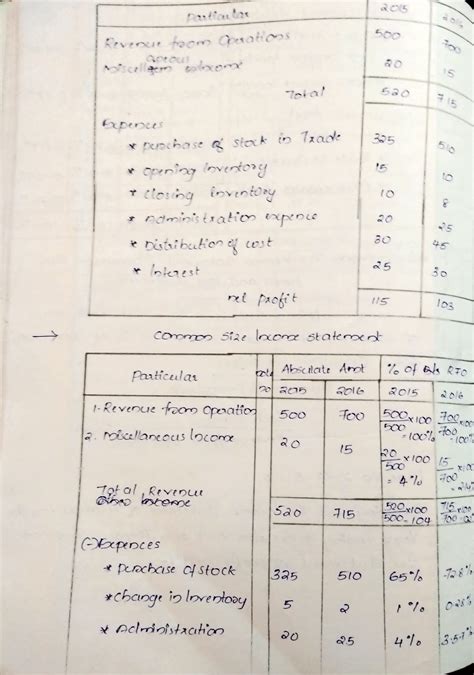 Particular 2015 2016
Revenue from Operations 500 700
Miscellaneous Income 20 15
Total 520 715
Expences
* purchase of stock in Trade 325 510
* opening Inventory 15 10
* closing inventory 10 8
* Administration expence 20 25
* Distribution of cost 30 45
* Interest 25 30
net profit 115 103
→ Common Size Income Statement
Particular Note no Absolute Amt % of R/o RTO
2015 2016 2015 2016
1. Revenue from Operation 500 700 500/500 x100 = 100% 700/700 x100 = 100%
2. Miscellaneous Income 20 15 20/500 x100 = 4% 15/700 x100
Total Revenue 520 715 520/500 x100 = 104 715/700 x100
(-) Expences
* purchase of stock 325 510 65% 72.8%
* change in Inventory 5 2 1% 0.28%
* Administration 20 25 4% 3.57%